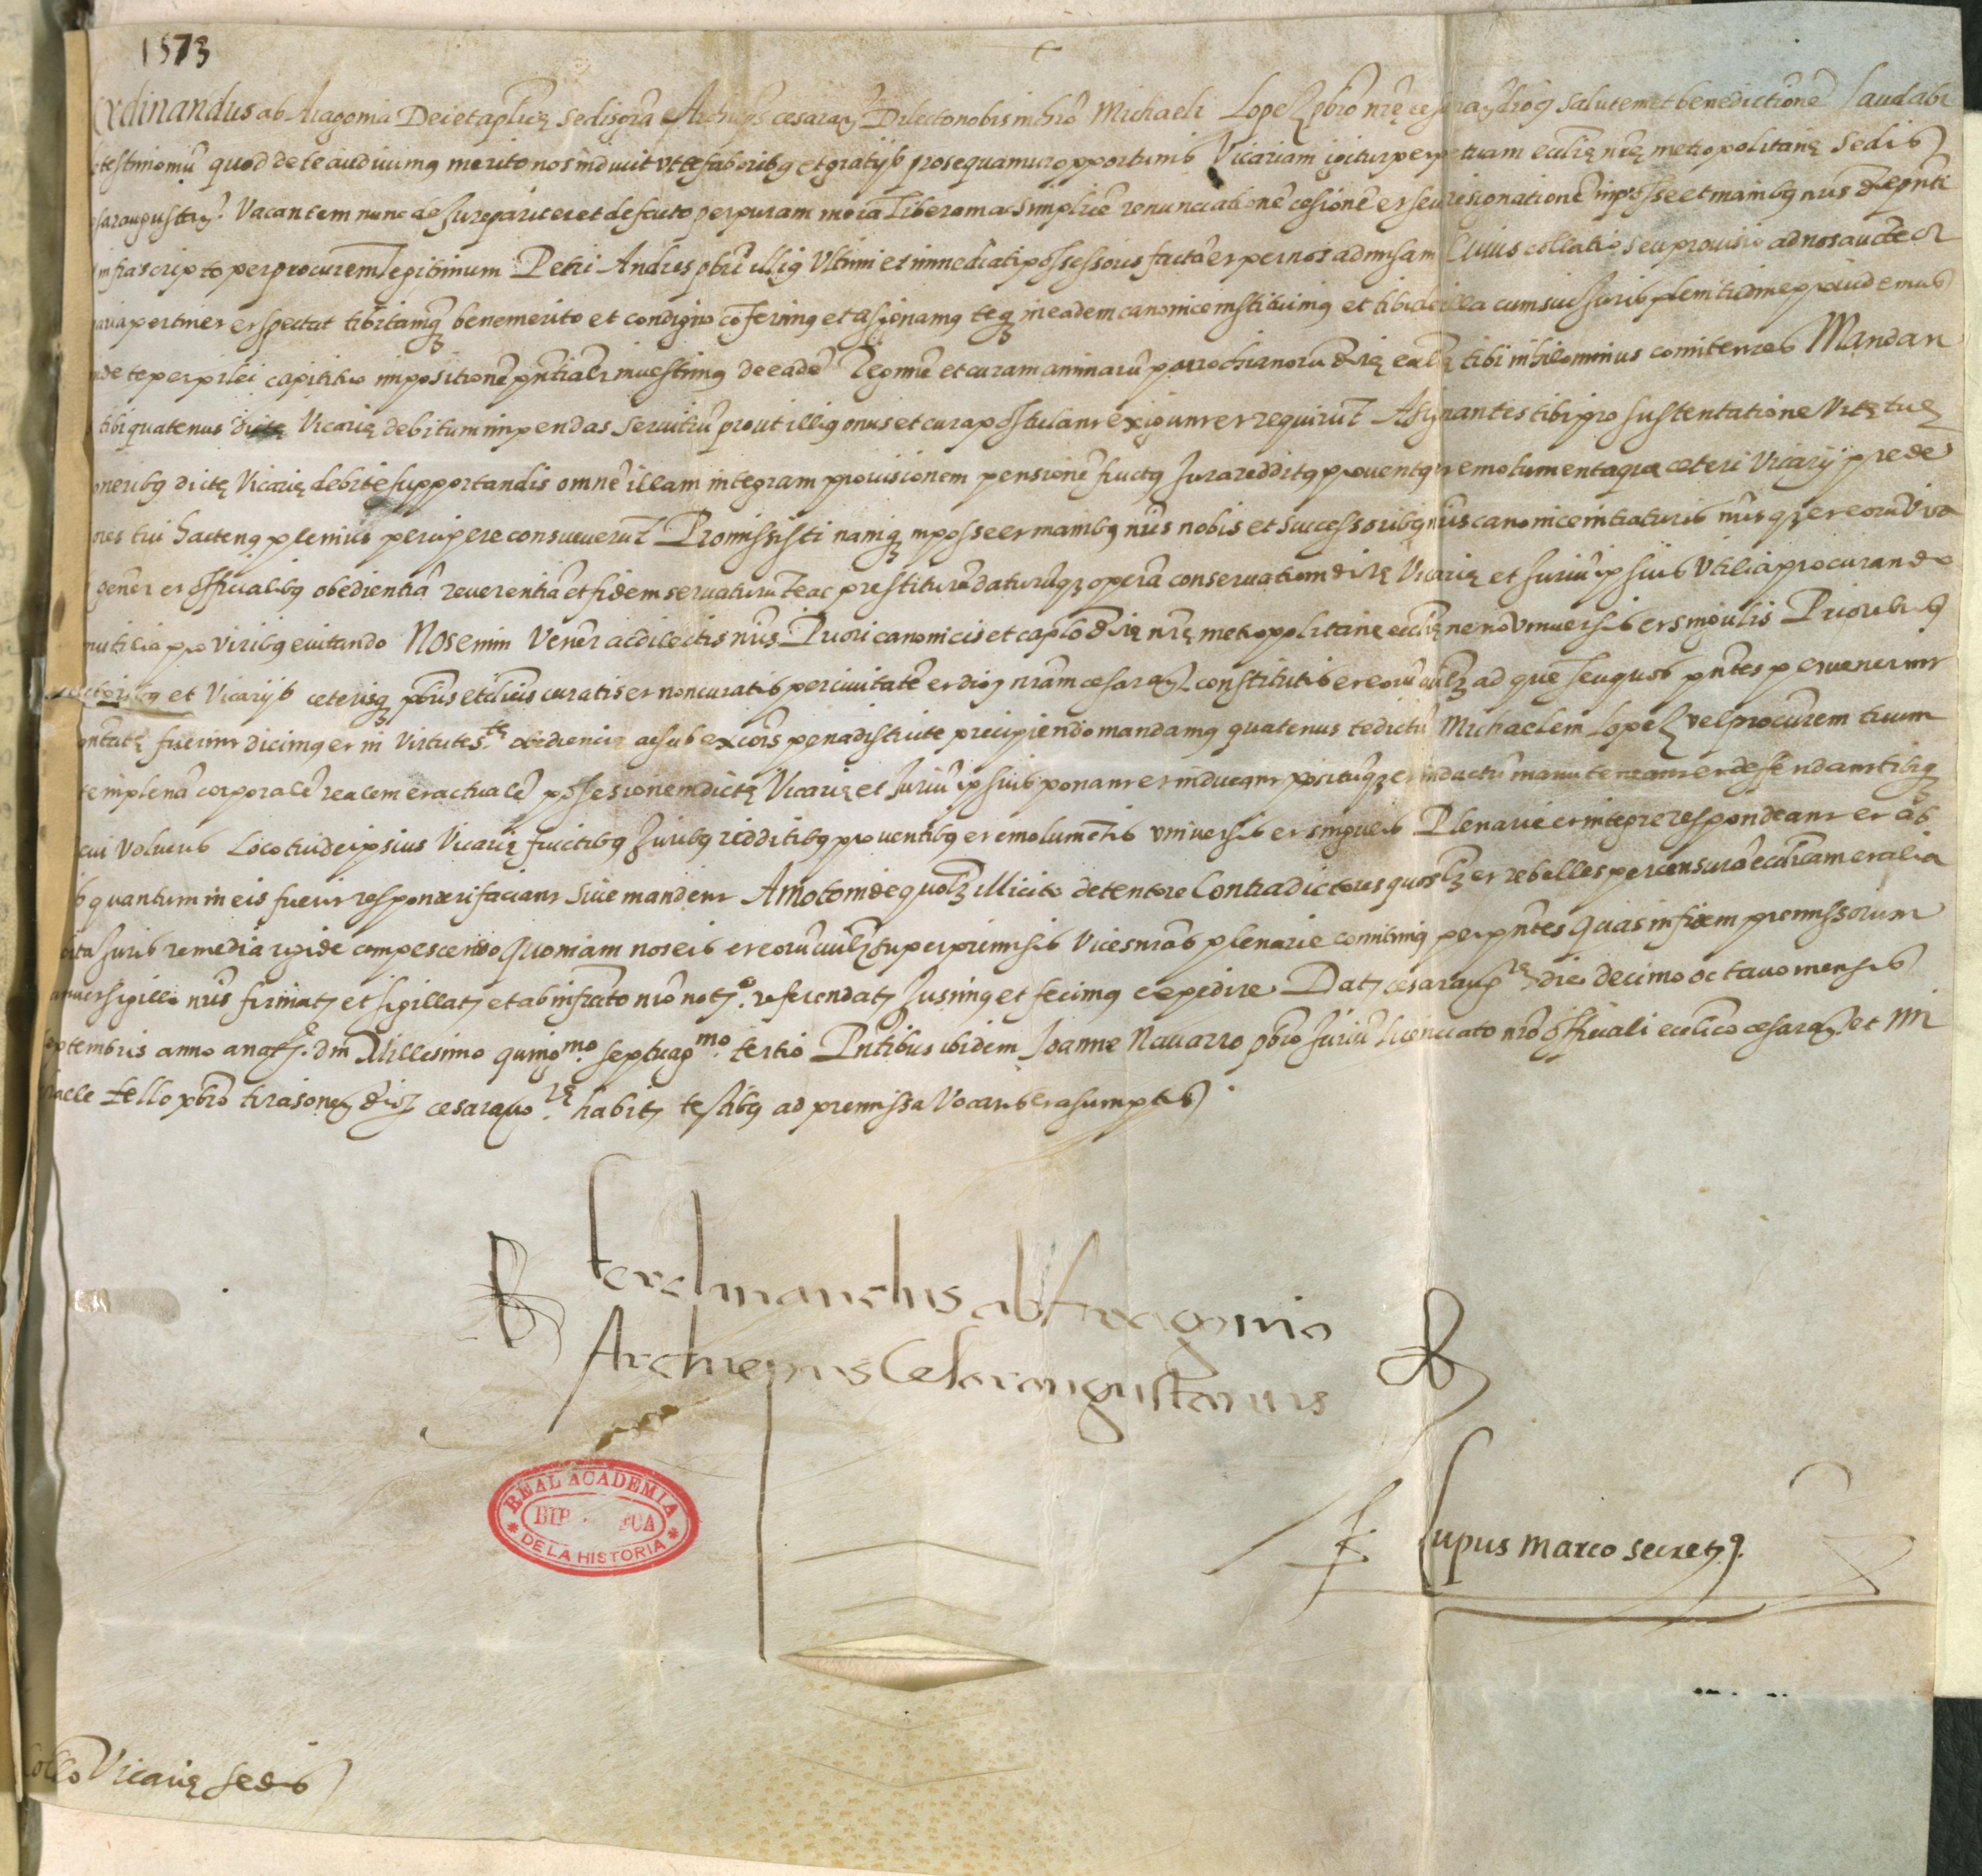 1573
Ferdinandus ab Aragonia Dei et aplicę Sedis gra Archieps cesaraug Dilecto nobis in chro Michaeli Lopez pbro nrę cesaraug dioc salutem et benedictionē Laudabi
testimoniū quod de te audiuimq merito nos induuit vt te faboribq et gratijs prosequamur opportunis Vicariam igitur perpetuam ecclię nrę metropolitanę Sedis
saraugustan Vacantem nunc de Jure pariter et de facto per puram merā liberam ac simplicē renunciationē cesionē et seu resignationē in posse et manibq nris die pnti
infrascripto per procurem legitimum Petri Andres pbri illiq Vltimi et immediati possessoris factā et per nos admisam Cuius collatio seu prouisio ad nos aucte or
naria pertinet et spectat tibi tamq benemerito et condigno cōferimq et asignamq teq in eadem canonice instituimq et tibi de illa cum sui Juris plenitudine prouidemus
inde te per pilei capiti tuo impositionē pntialr inuestimq de eadē Regimē et curam animarū parrochianorū dictę eccłę tibi nihilominus comitemus Mandan
tibi quatenus dictę Vicarię debitum impendas seruitiū prout illiq onus et cura postulant exigunt et requirūt Asignantes tibi pro sustentatione Vitę tuę
oneribq dictę Vicarię debite supportandis omnē illam integram prouisionem pensionē fructq Jura redditq prouentq et emolumenta quæ ceteri Vicarij prede
res tui hactenq plenius percipere consueuerūt Promissisti namq in posse et manibq nris nobis et successoribq nris canonice intraturis nrisq et eorū Vica
gener et officialibq obedientiā reuerentiā et fidem seruaturū te ac prestiturū daturūq operā conseruationi dictę Vicarię et Juriū ipsius Vtilia procurando
inutilia pro viribq euitando Nos enim Vener ac dilectis nris Priori canonicis et caplo dictę nrę metropolitanę eccłię nec nō vniuersis et singulis Prioribq
Rectoribq et Vicarijs ceterisq pbris et clicis curatis et non curatis per ciuitatē et dioc nram cesaraug constitutis et eorū cuilz ad quē seu quos pntes peruenerint
pntatę fuerint dicimq et in Virtute s.tę obediencię ac sub excōis pena districte precipiendo mandamq quatenus te dictū Michaelem Lopez vel procurem tuum
te in plenā corporalē realem et actualē possesionem dictę Vicarię et Juriū ipsius ponant et inducant positūq et inductū manuteneant et deffendant tibiq
cui Volueris Loco tui de ipsius Vicarię fructibq Juribq redditibq prouentibq et emolumētis vniuersis et singulis Plenarie et integre respondeant et ab
quantum in eis fuerit responderi faciant siue mandent Amoto inde quolz illicito detentore Contradictores quoslz et rebelles per censurā ecclicam et alia
Juris remedia rigide compescendo Quoniam nos eis et eorū cuilz super premisis Vices nras plenarie comitimq per pntes Quas in fidem premissorum
sigillo nris firmatz et sigillatz et ab infrato nro notz.o referendatz Jusimq et fecimq expedire Datz cesaraug.tę die decimo octauo mensis
septembris anno a natz.e dni Millesimo quing.mo septuag.mo tertio Pntibus ibidem Joanne Nauarro pbro Juriū Licenciato nro officiali ecclico cesaraug et Mi
chaele tello pbro tirasonen dioc cesaraug.tę habitz testibq ad premissa Vocatis et asumptis
ferdinandus ab Aragonia
Archiepus Cesaraugustanus
Lupus Marco secretz.
REAL ACADEMIA
DE LA HISTORIA
Collō Vicarię sedis